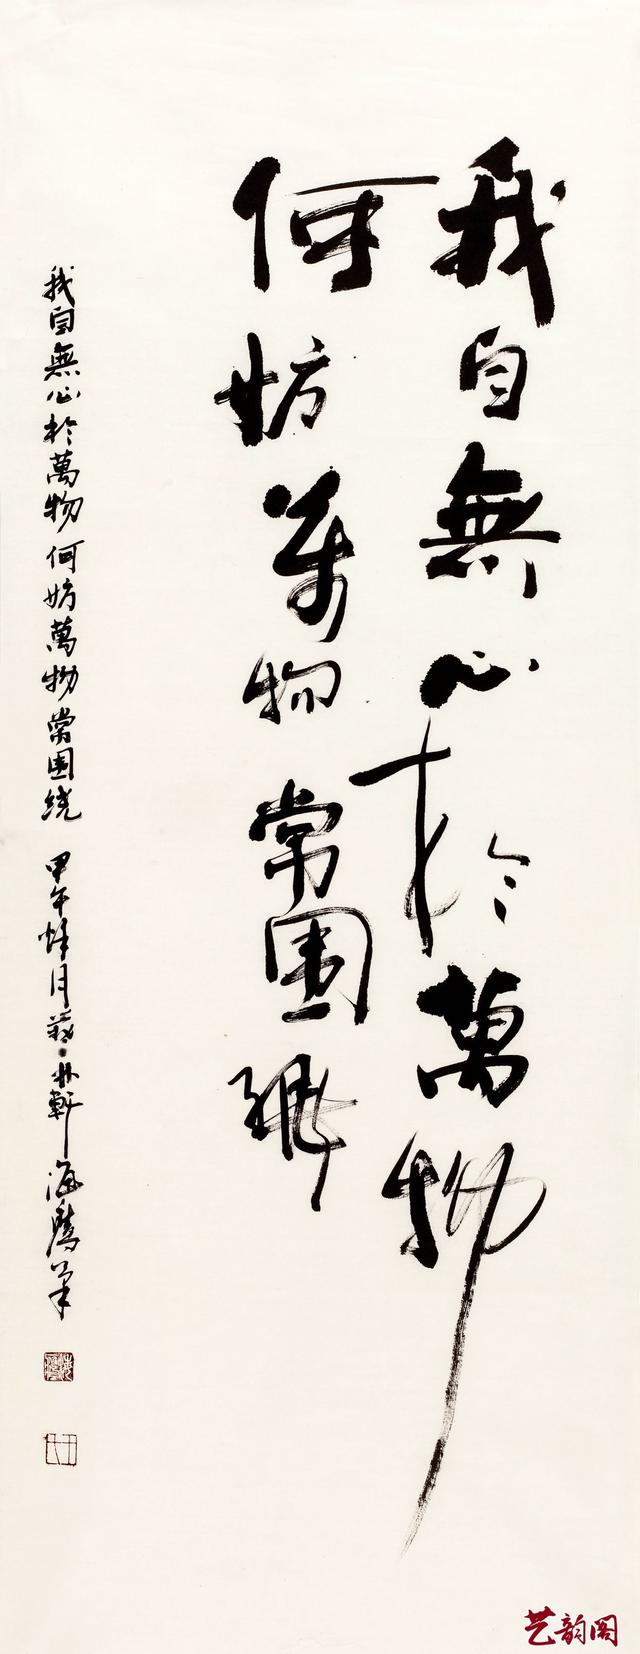 我自無心於萬物
何妨萬物常圍繞
我自無心於萬物何妨萬物常圍繞 甲午 月 軒海鷹筆
艺韵阁